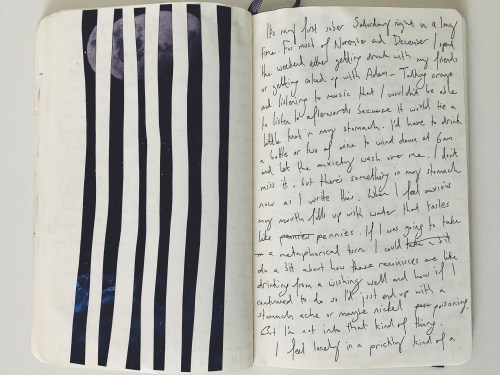 Its my first sober Saturday night in a long
time. For most of November and December I spent
the weekend either getting drunk with my friends
or getting coked up with Adam - Talking crap
and listening to music that I wouldn't be able
to listen to afterwards because it would tie a
little knot in my stomach. I'd have to drink
a bottle or two of wine to wind down at 6am
and let the anxiety wash over me. I don't
miss it, but there's something in my stomach
now as I write this. When I feel anxious
my mouth fills up with water that tastes
like pennies. If I was going to take
a metaphorical turn I could take a bit
do a bit about how these reminisces are like
drinking from a wishing well and how if I
continued to do so I'd just end up with a
stomach ache or maybe nickel poisoning.
But I'm not into that kind of thing.
I feel lonely in a prickly kind of a